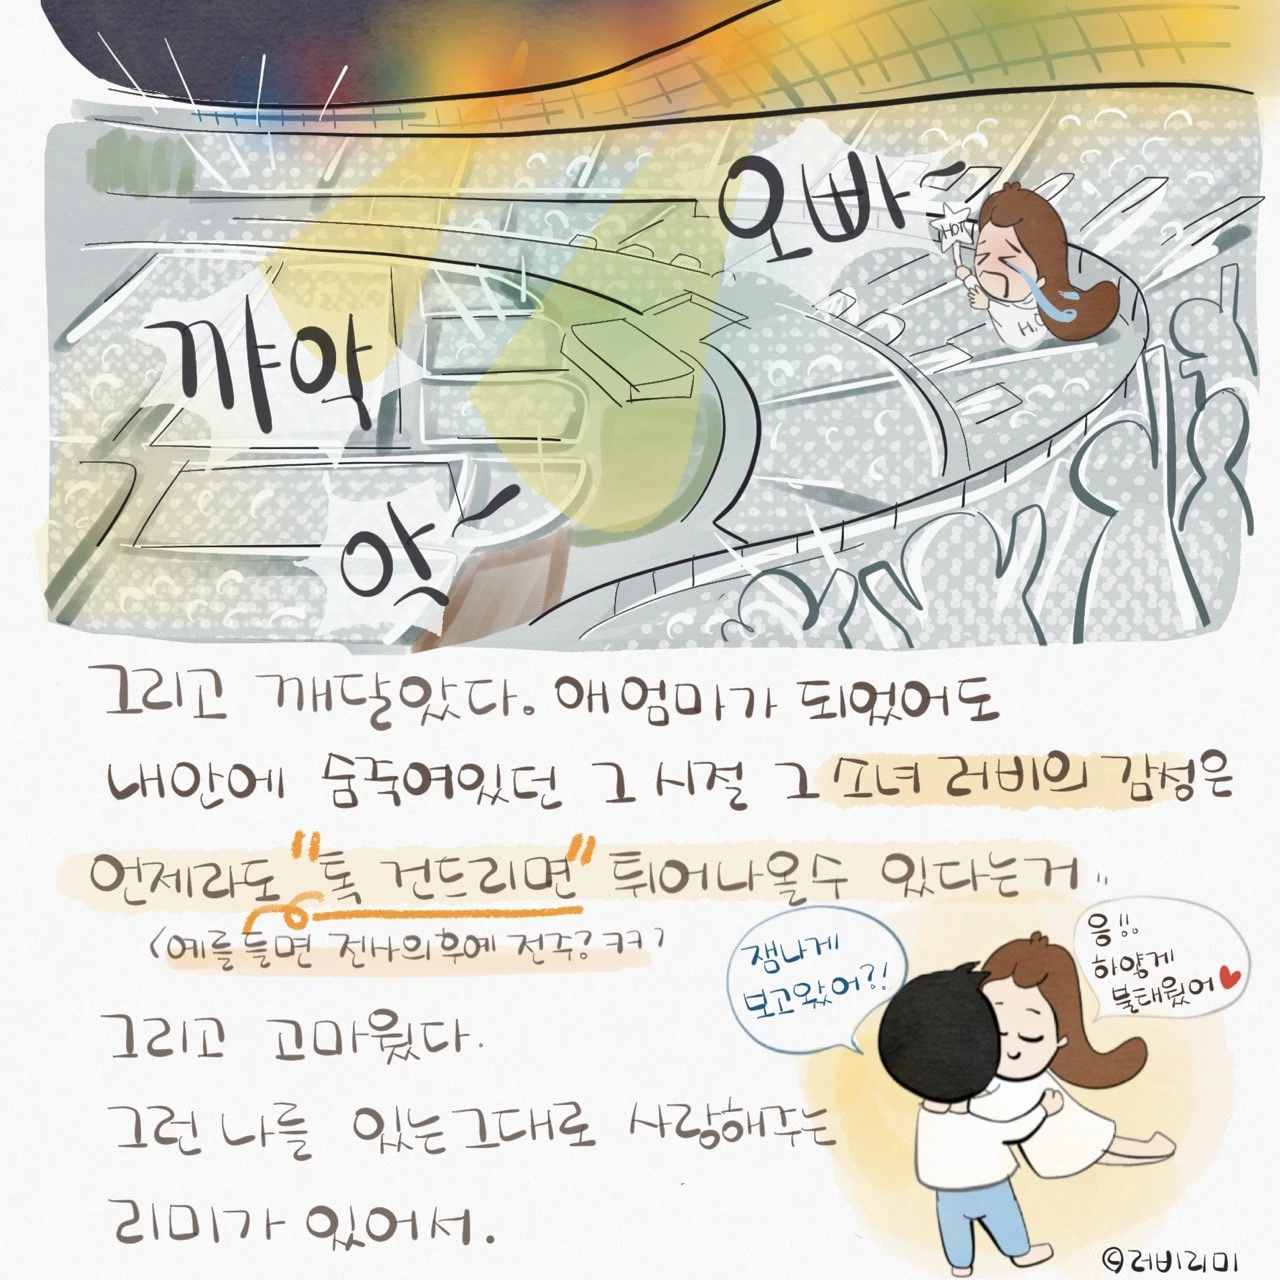 오빠-
HOT
H.O
꺄악
악-
그리고 깨달았다. 애엄마가 되었어도
내안에 숨죽여있던 그 시절 그 소녀 러비의 감성은
언제라도 "톡 건드리면" 튀어나올수 있다는거..
(예를 들면 전사의후예 전주? ㅋㅋ)
잼나게
보고왔어?!
응!!
하얗게
불태웠어♥
그리고 고마웠다.
그런 나를 있는그대로 사랑해주는
리미가 있어서.
©러비리미